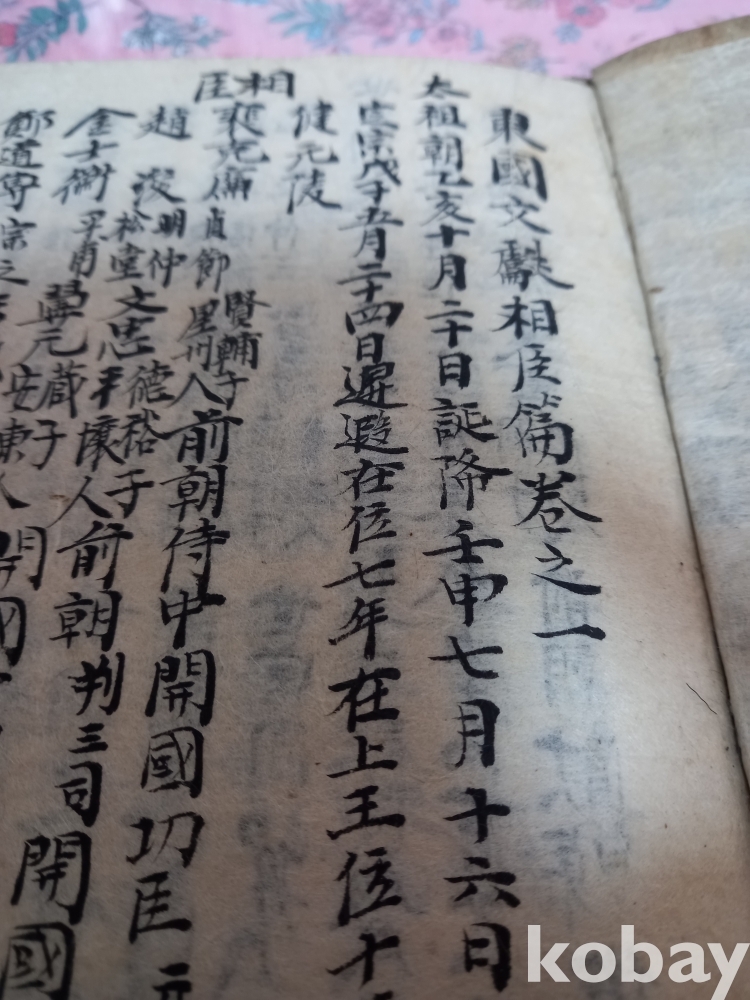 東國文獻相臣篇卷之一
太祖朝乙亥十月二十日誕降壬申七月十六日
宗戊子五月二十四日遐在位七年在上王位十
健元陵
相臣
裴克廉貞節賢輔子星州人前朝侍中開國功臣元
趙浚明仲松堂文忠德裕子平壤人前朝判三司開國
金士衡平甫翼元蕆子安東人開國
鄭道傳宗之